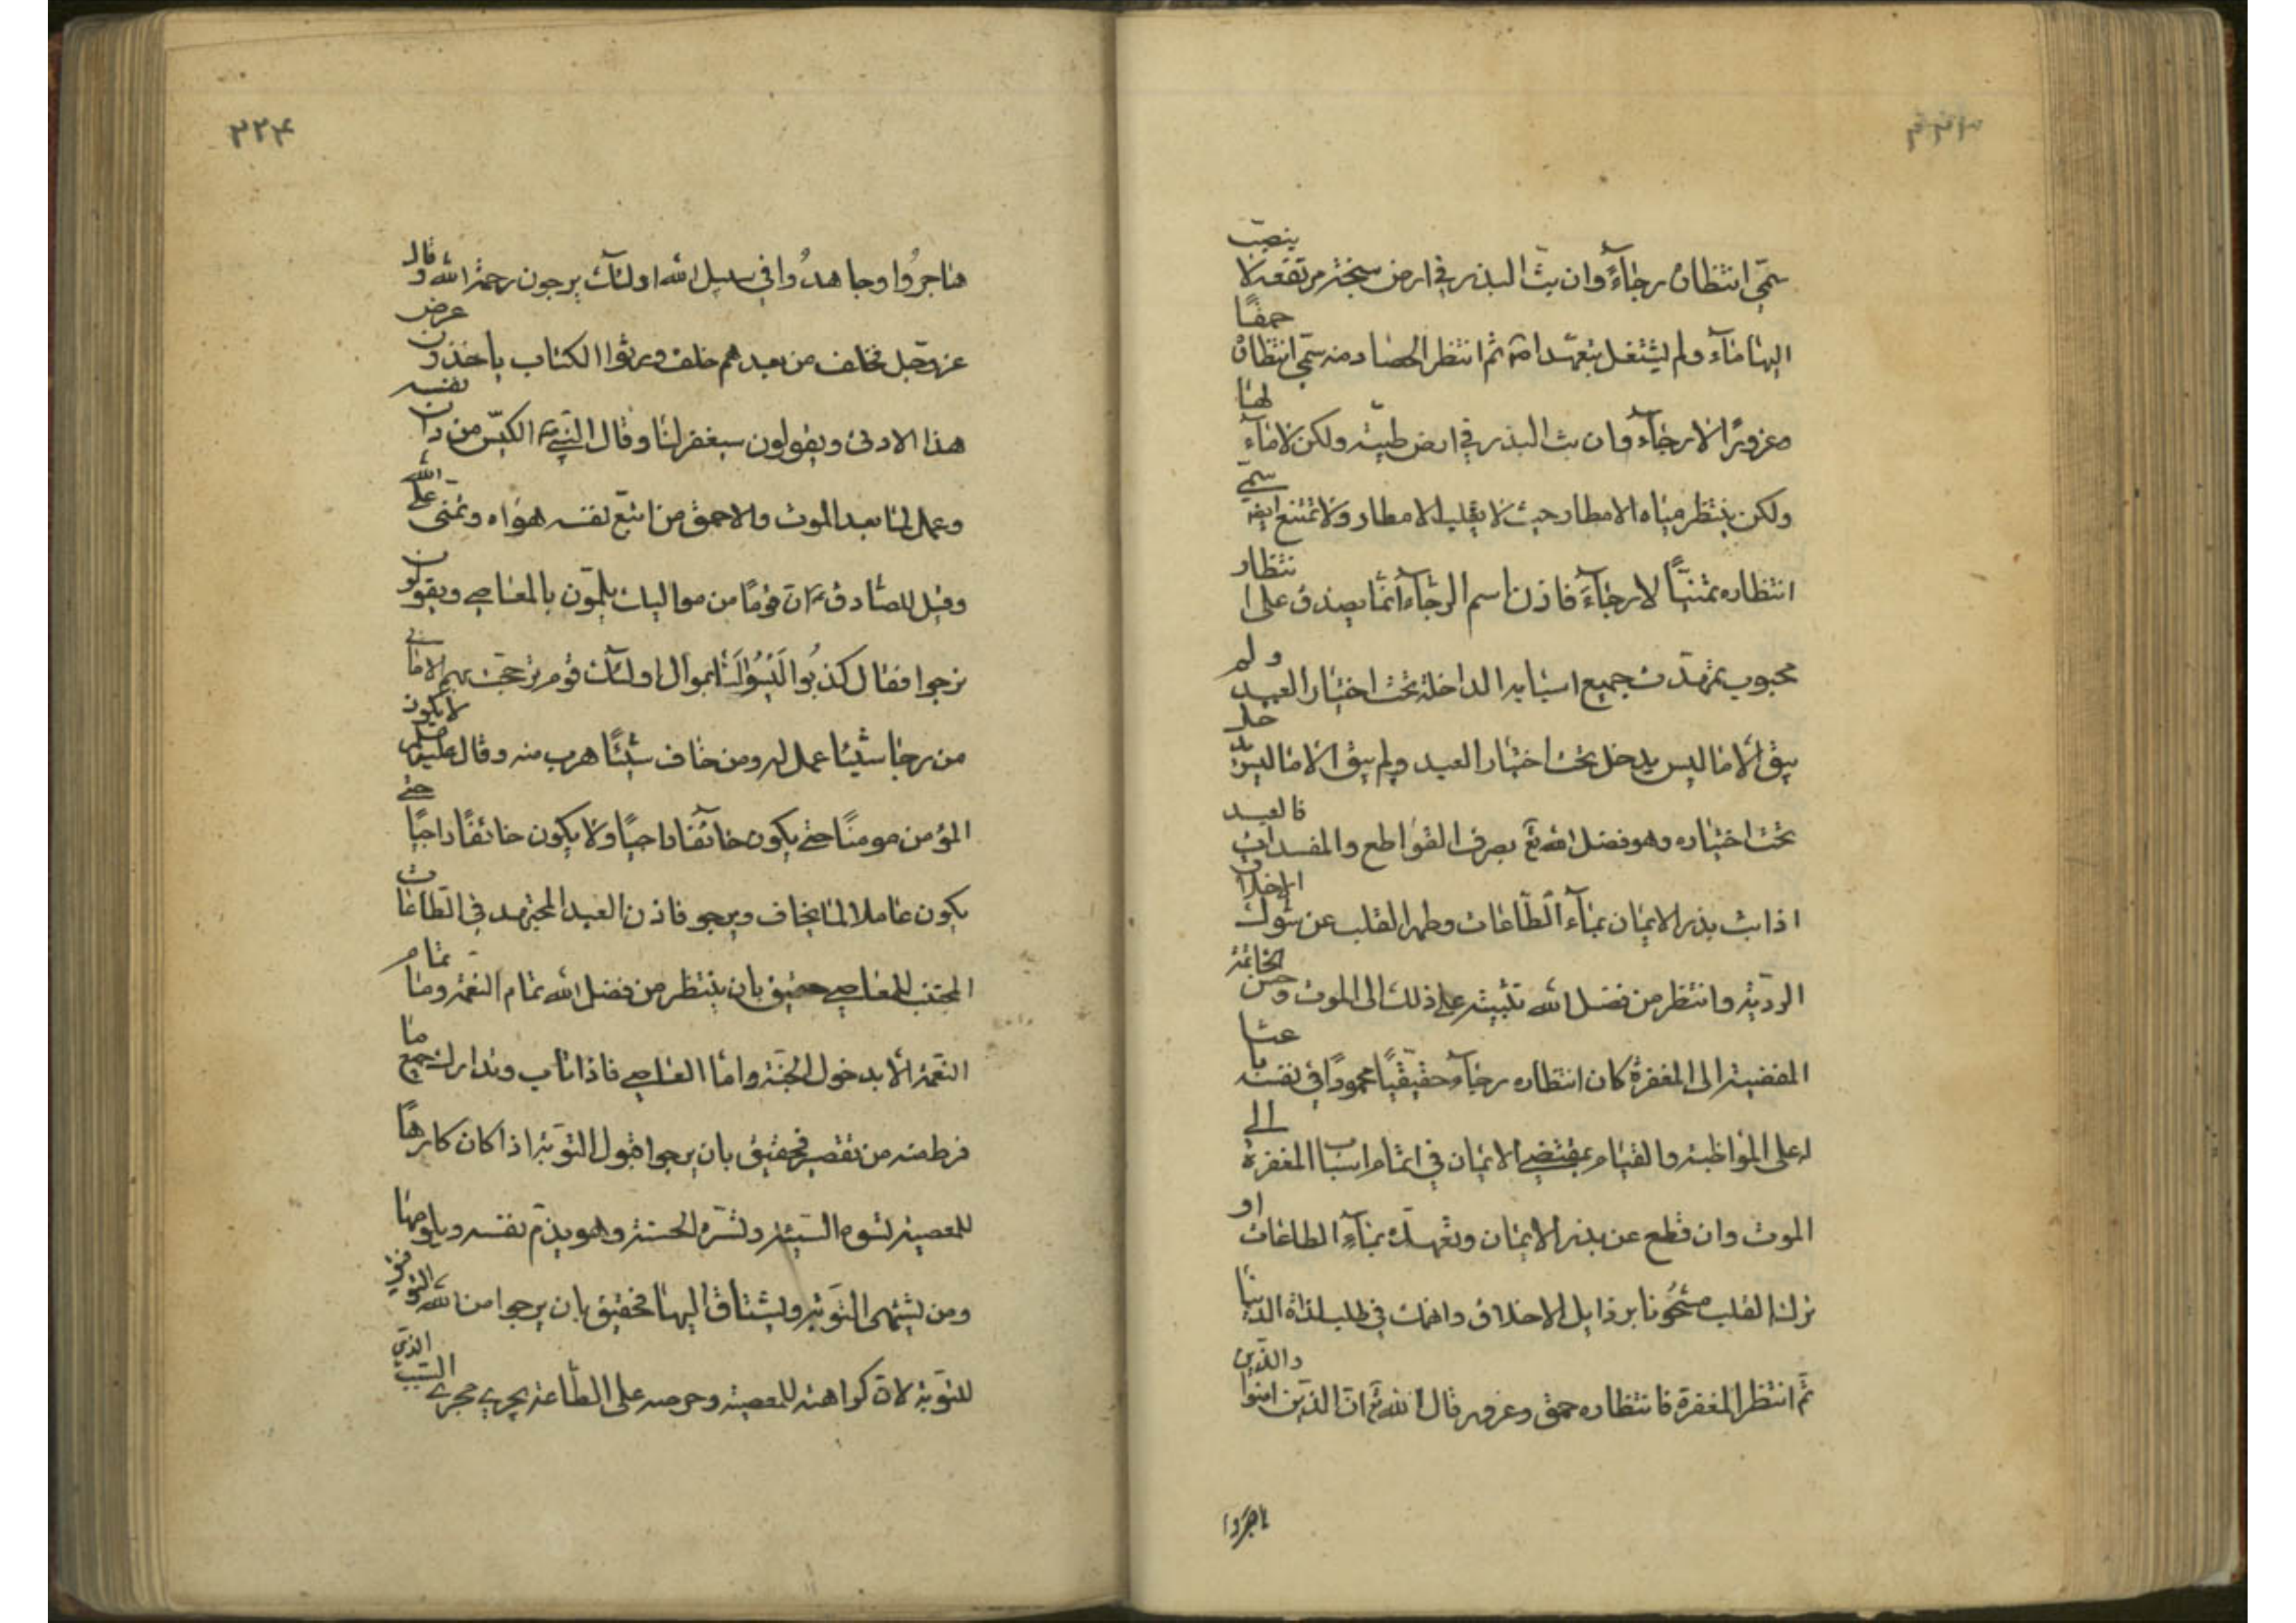 سمّي انتظاره رجاءً وان بثّ البذر في ارض سبخة مرتفعة لا ينصبّ
اليها ماء ولم يشتغل بتعهّدامّ ثم انتظر الحصاد منه سمّي انتظاره حمقًا
وغرورًا لا رجاء وان بث البذر في ارض طيبة ولكن لا ماء لها
ولكن ينتظر مياه الامطار حيث لا يغلب الامطار ولا تمتنع ايضا سمّي
انتظاره تمنيًّا لا رجاءً فاذن اسم الرجاء انّما يصدق على انتظار
محبوب تمهّدت جميع اسبابه الداخلة تحت اختيار العبد ولم
يبق الا ما ليس يدخل تحت اختيار العبد ولم يبق الا ما ليس يدخل
تحت اختياره وهو فضل الله تع بصرف القواطع والمفسدات فالعبد
اذا بث بذر الايمان بماء الطّاعات وطهر القلب عن شوك الاخلاق
الرديّة وانتظر من فضل الله تثبيته على ذلك الى الموت وحسن الخاتمة
المفضية الى المغفرة كان انتظاره رجاء حقيقيًّا محمودًا في نفسه باعثا
له على المواظبة والقيام بمقتضى الايمان في اتمام اسباب المغفرة الى
الموت وان قطع عن بذر الايمان وتعهده بماء الطاعات او
ترك القلب مشحونا برذايل الاخلاق وانهمك في طلب لذة الدنيا
ثم انتظر المغفرة فانتظاره حمق وغرور قال الله تع ان الذين امنوا والذين
هاجروا
٢٢٤
هاجرُوا وجاهدُوا في سبيل الله اولئك يرجون رحمة الله وقال
عز وجل فخلف من بعدهم خلف ورثوا الكتاب ياخذون عرض
هذا الادنى ويقولون سيغفر لنا وقال النبي ص الكيّس من دان نفسه
وعمل لما بعد الموت والاحمق من اتبع نفسه هواه وتمنّى على الله
وقيل للصادق ع انّ قومًا من مواليك يلمّون بالمعاصي ويقولون
نرجوا فقال كذبُوا لَيْسُوا لَنا بموال اولئك قوم ترجحت بهم الاماني
من رجا شيئا عمل له ومن خاف شيئًا هرب منه وقال عليه السلم لا يكون
المؤمن مومنًا حتى يكون خائفا راجيًا ولا يكون خائفًا راجيًا حتى
يكون عاملا لما يخاف ويرجو فاذن العبد المجتهد في الطّاعات
المجتنب للمعاصي حقيق بان ينتظر من فضل الله تمام النعمة وما تمام
النعمة الا بدخول الجنّة وامّا العاصي فاذا تاب وتدارك جميع ما
فرط منه من تقصير فحقيق بان يرجوا قبول التوبة اذا كان كارهًا
للمعصية تسوه السيئة وتسّره الحسنة وهو يذمّ نفسه ويلومها
ومن يشتهى التوبة ويشتاق اليها فحقيق بان يرجوا من الله التوفيق
للتوبة لانّ كراهته للمعصية وحرصه على الطّاعة يجري مجرى السّبب الذي